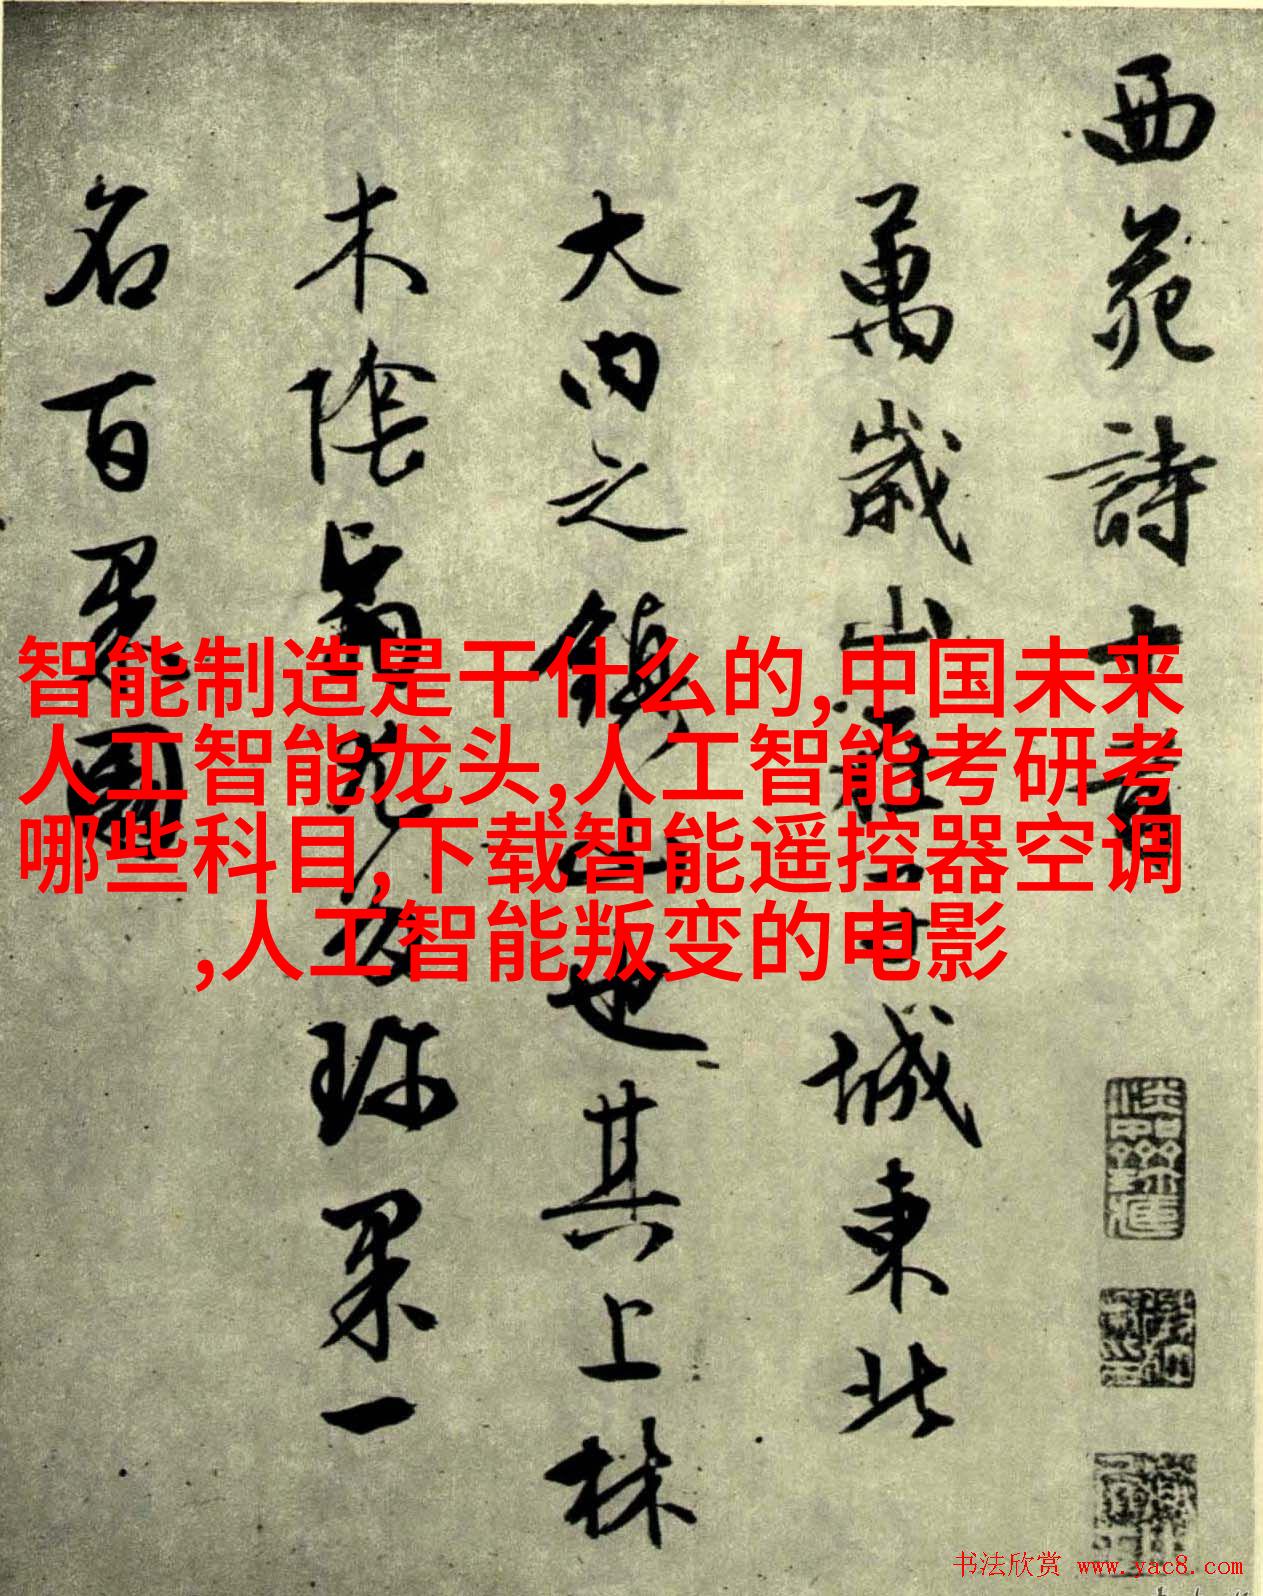 西苑詩十首
萬歲山在子城東北
大內之鎮山也其上林
木陰翳尤多珍果一
名百果園
智能制造是干什么的,中国未来
人工智能龙头,人工智能考研考
哪些科目,下载智能遥控器空调
,人工智能叛变的电影
书法欣赏 www.yac8.com